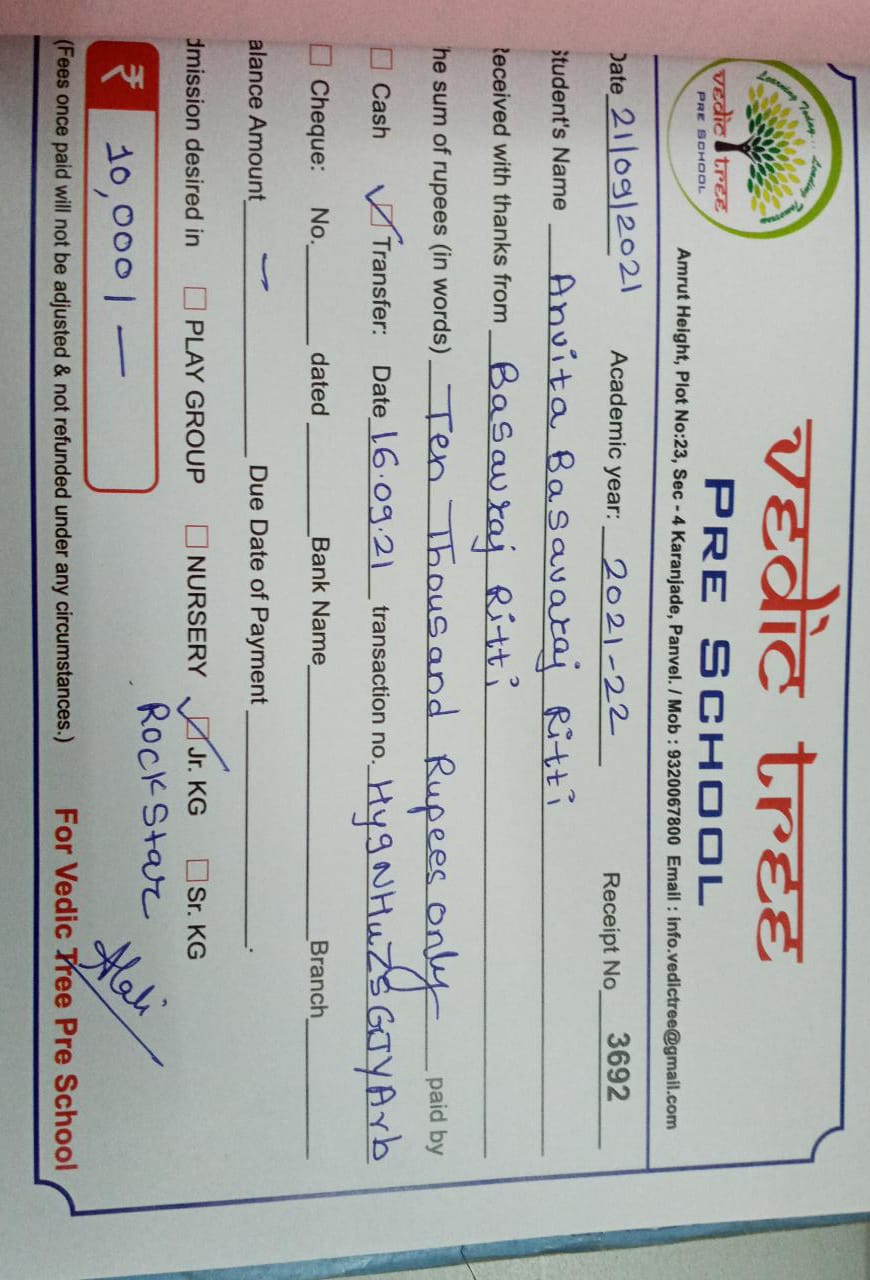 Learning Today... Leading Tomorrow
vedic tree
PRE SCHOOL
vedic tree
PRE SCHOOL
Amrut Height, Plot No:23, Sec - 4 Karanjade, Panvel. / Mob : 9320067800 Email : info.vedictree@gmail.com
Date 21/09/2021 Academic year: 2021-22 Receipt No 3692
Student's Name Anvita Basavaraj Ritti
Received with thanks from Basavraj Ritti
he sum of rupees (in words) Ten Thousand Rupees only paid by
Cash Transfer: Date 16.09.21 transaction no. HygNHuZSGTYArb
Cheque: No. dated Bank Name Branch
alance Amount - Due Date of Payment .
dmission desired in PLAY GROUP NURSERY Jr. KG Sr. KG
Rockstar
₹ 10,000/-
(Fees once paid will not be adjusted & not refunded under any circumstances.) For Vedic Tree Pre School